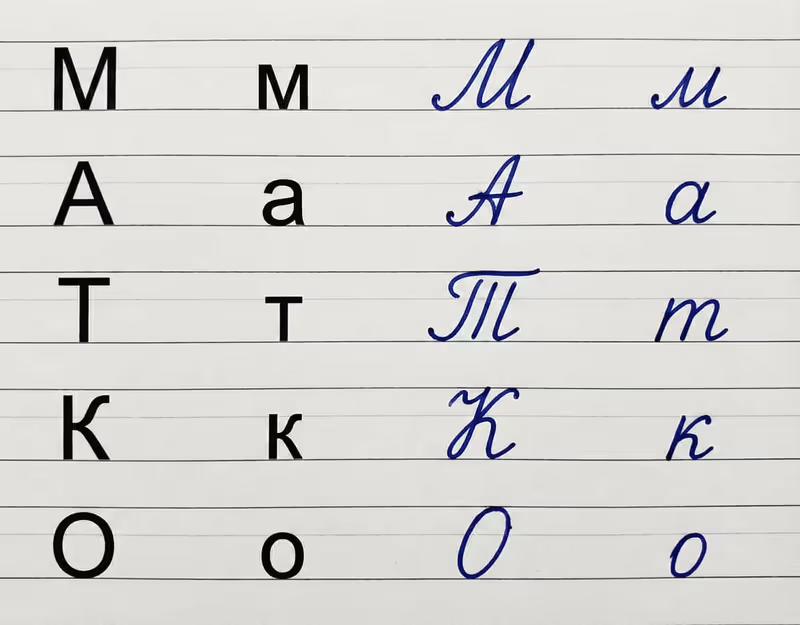 М м М м
А а А а
Т т Т т
К к К к
О о О о